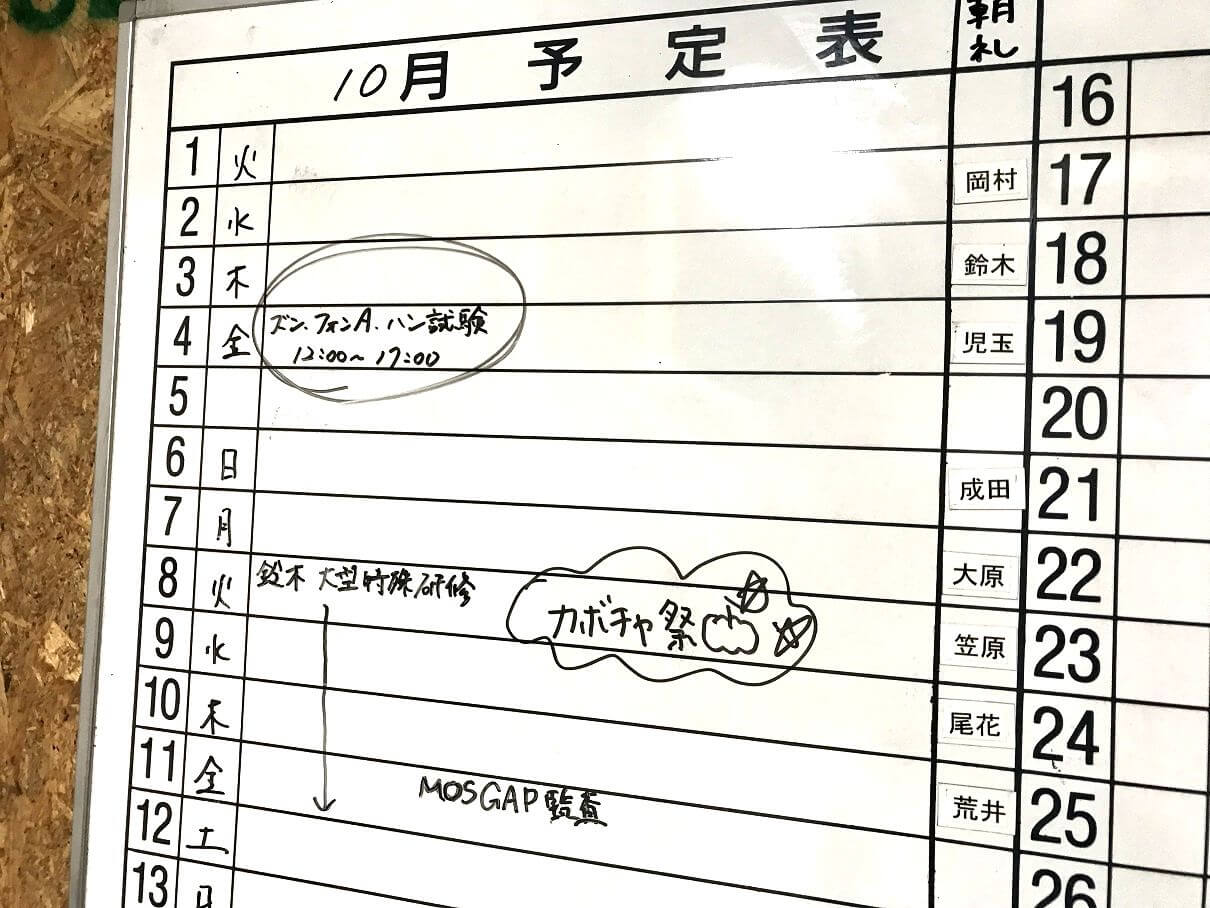 10月 予定表 朝礼
1 火
2 水 岡村 17
3 木 鈴木 18
4 金 ズン.フォンA.ハン試験 児玉 19
12:00~17:00
5 20
6 日 成田 21
7 月 大原 22
8 火 鈴木 大型特殊研修 カボチャ祭 笠原 23
9 水 尾花 24
10 木
11 金 MOSGAP監査 荒井 25
12 土
13 日 26
16